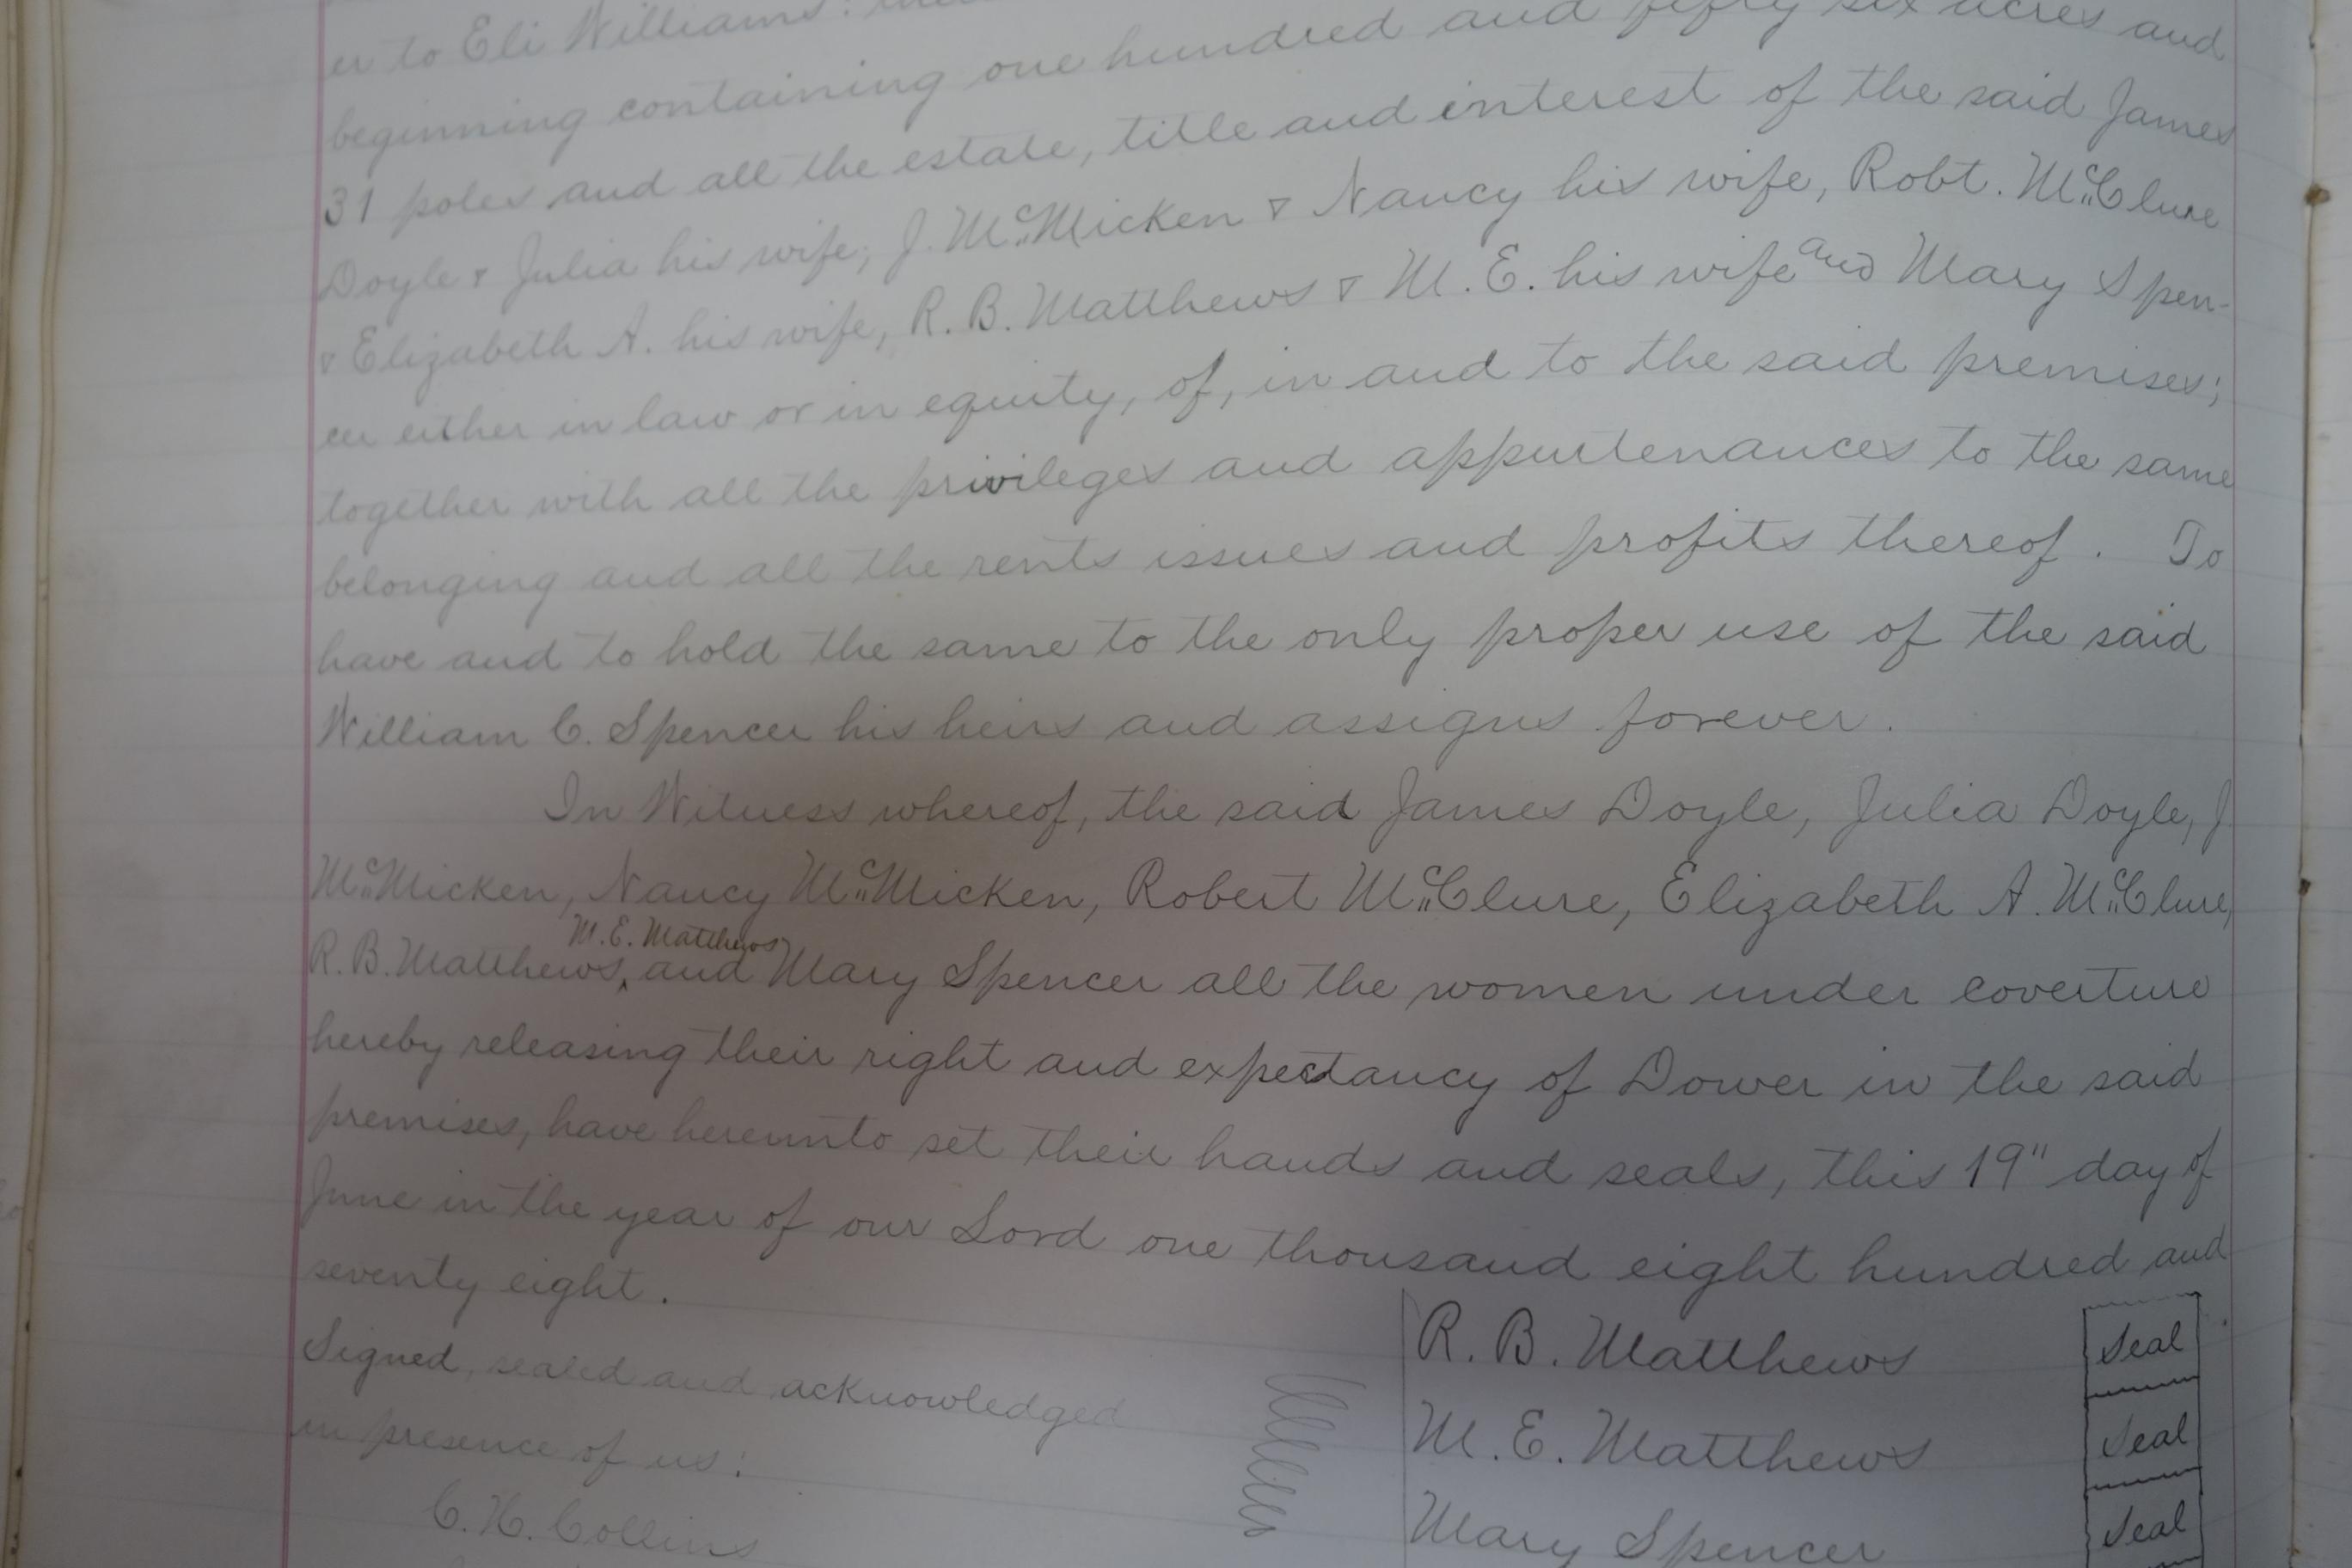 er to Eli Williams:
beginning containing one hundred and fifty six acres and
31 poles and all the estate, title and interest of the said James
Doyle & Julia his wife, J. McMicken & Nancy his wife, Robt. McClure
& Elizabeth A. his wife, R. B. Matthews & M. E. his wife and Mary Spen-
cer either in law or in equity, of, in and to the said premises;
together with all the privileges and appurtenances to the same
belonging and all the rents issues and profits thereof. To
have and to hold the same to the only proper use of the said
William C. Spencer his heirs and assigns forever.
In Witness whereof, the said James Doyle, Julia Doyle, J.
McMicken, Nancy McMicken, Robert McClure, Elizabeth A. McClure,
M. E. Matthews
R. B. Matthews, and Mary Spencer all the women under coverture
hereby releasing their right and expectancy of Dower in the said
premises, have hereunto set their hands and seals, this 19" day of
June in the year of our Lord one thousand eight hundred and
seventy eight.
Signed, sealed and acknowledged
in presence of us:
C. H. Collins
R. B. Matthews Seal
M. E. Matthews Seal
Mary Spencer Seal